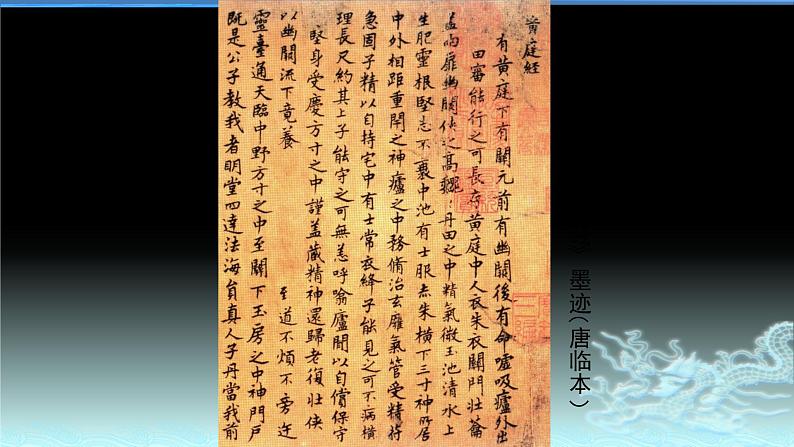 黄庭經
有黄庭下有關元前有幽闕後有命嘘吸廬外出
田審能行之可長存黄庭中人衣朱衣關門壯籥
盖兩扉幽闕俠之高巍〻丹田之中精氣微玉池清水上
生肥靈根堅志不衰中池有士服赤朱横下三寸神所居
中外相距重閇之神廬之中務脩治玄廱氣管受精苻
急固子精以自持宅中有士常衣絳子能見之可不病橫
理長尺約其上子能守之可無恙呼噏廬間以自償保守
堅身受慶方寸之中謹盖藏精神還歸老復壯俠
以幽闕流下竟養 至道不煩不旁迕
靈臺通天臨中野方寸之中至關下玉房之中神門戶
既是公子教我者明堂四達法海貟真人子丹當我前
》墨迹（唐临本）